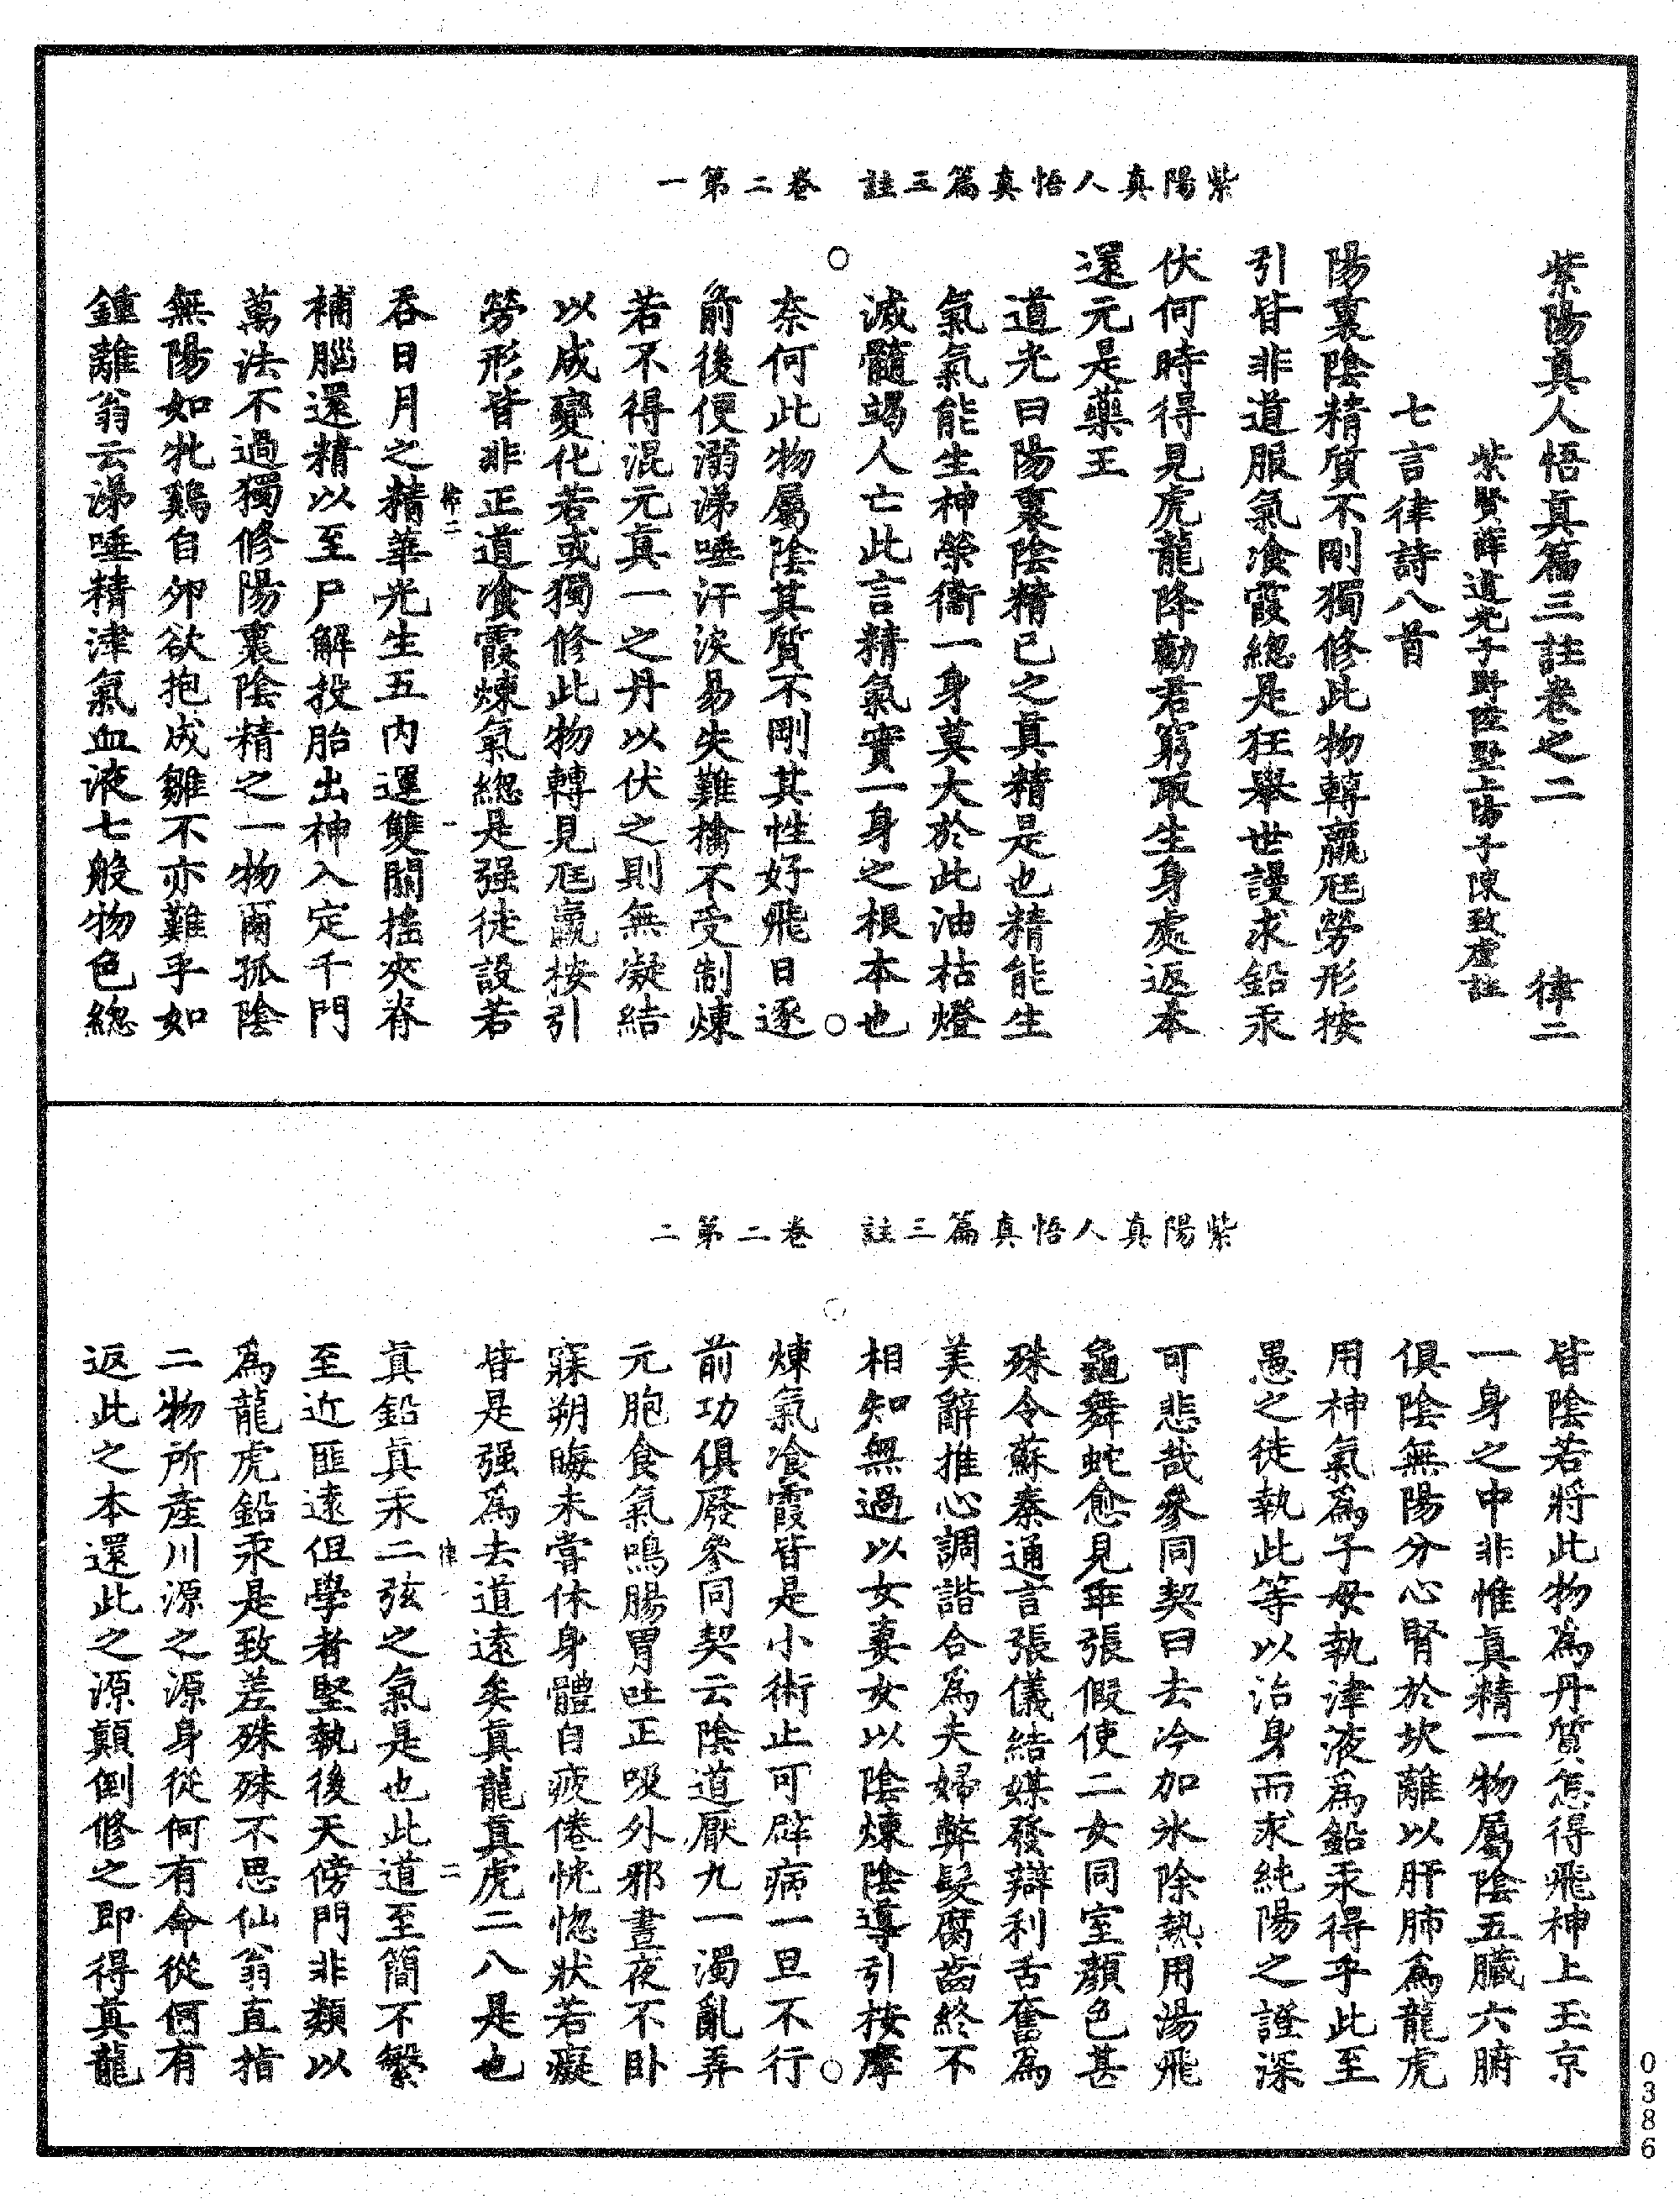 紫陽真人悟真篇三註　卷二第一
紫陽真人悟真篇三註卷之二　律二
紫賢薛道光子野陸墅上陽子陳致虛註
七言律詩八首
陽裏陰精質不剛獨修此物轉羸尫勞形按
引皆非道服氣飡霞總是狂舉世謾求鉛汞
伏何時得見虎龍降勸君窮取生身處返本
還元是藥王
道光曰陽裏陰精已之真精是也精能生
氣氣能生神榮衞一身莫大於此油枯燈
滅髓竭人亡此言精氣實一身之根本也
奈何此物屬陰其質不剛其性好飛日逐
前後便溺涕唾汗淚易失難擒不受制煉
若不得混元真一之丹以伏之則無凝結
以成變化若或獨修此物轉見尫羸按引
勞形皆非正道飡霞煉氣總是强徒設若
律二　一
吞日月之精華光生五內運雙關搖夾脊
補腦還精以至尸解投胎出神入定千門
萬法不過獨修陽裏陰精之一物爾孤陰
無陽如牝鷄自卵欲抱成雛不亦難乎如
鍾離翁云涕唾精津氣血液七般物色總
紫陽真人悟真篇三註　卷二第二
皆陰若將此物為丹質怎得飛神上玉京
一身之中非惟真精一物屬陰五臟六腑
俱陰無陽分心腎於坎離以肝肺為龍虎
用神氣為子母執津液為鉛汞得乎此至
愚之徒執此等以治身而求純陽之謹深
可悲哉參同契曰去冷加氷除熱用湯飛
龜舞蛇愈見乖張假使二女同室顏色甚
殊令蘇秦通言張儀結媒發辯利舌奮為
美辭推心調諧合為夫婦弊髮腐齒終不
相知無過以女妻女以陰煉陰導引按摩
煉氣飡霞皆是小術止可辟病一旦不行
前功俱廢參同契云陰道厭九一濁亂弄
元胞食氣鳴腸胃吐正吸外邪晝夜不卧
寐朔晦未嘗休身體自疲倦恍惚狀若癡
皆是强為去道遠矣真龍真虎二八是也
律　二
真鉛真汞二弦之氣是也此道至簡不繁
至近匪遠但學者堅執後天傍門非類以
為龍虎鉛汞是致差殊殊不思仙翁直指
二物所產川源之源身從何有命從何有
返此之本還此之源顛倒修之即得真龍
0386